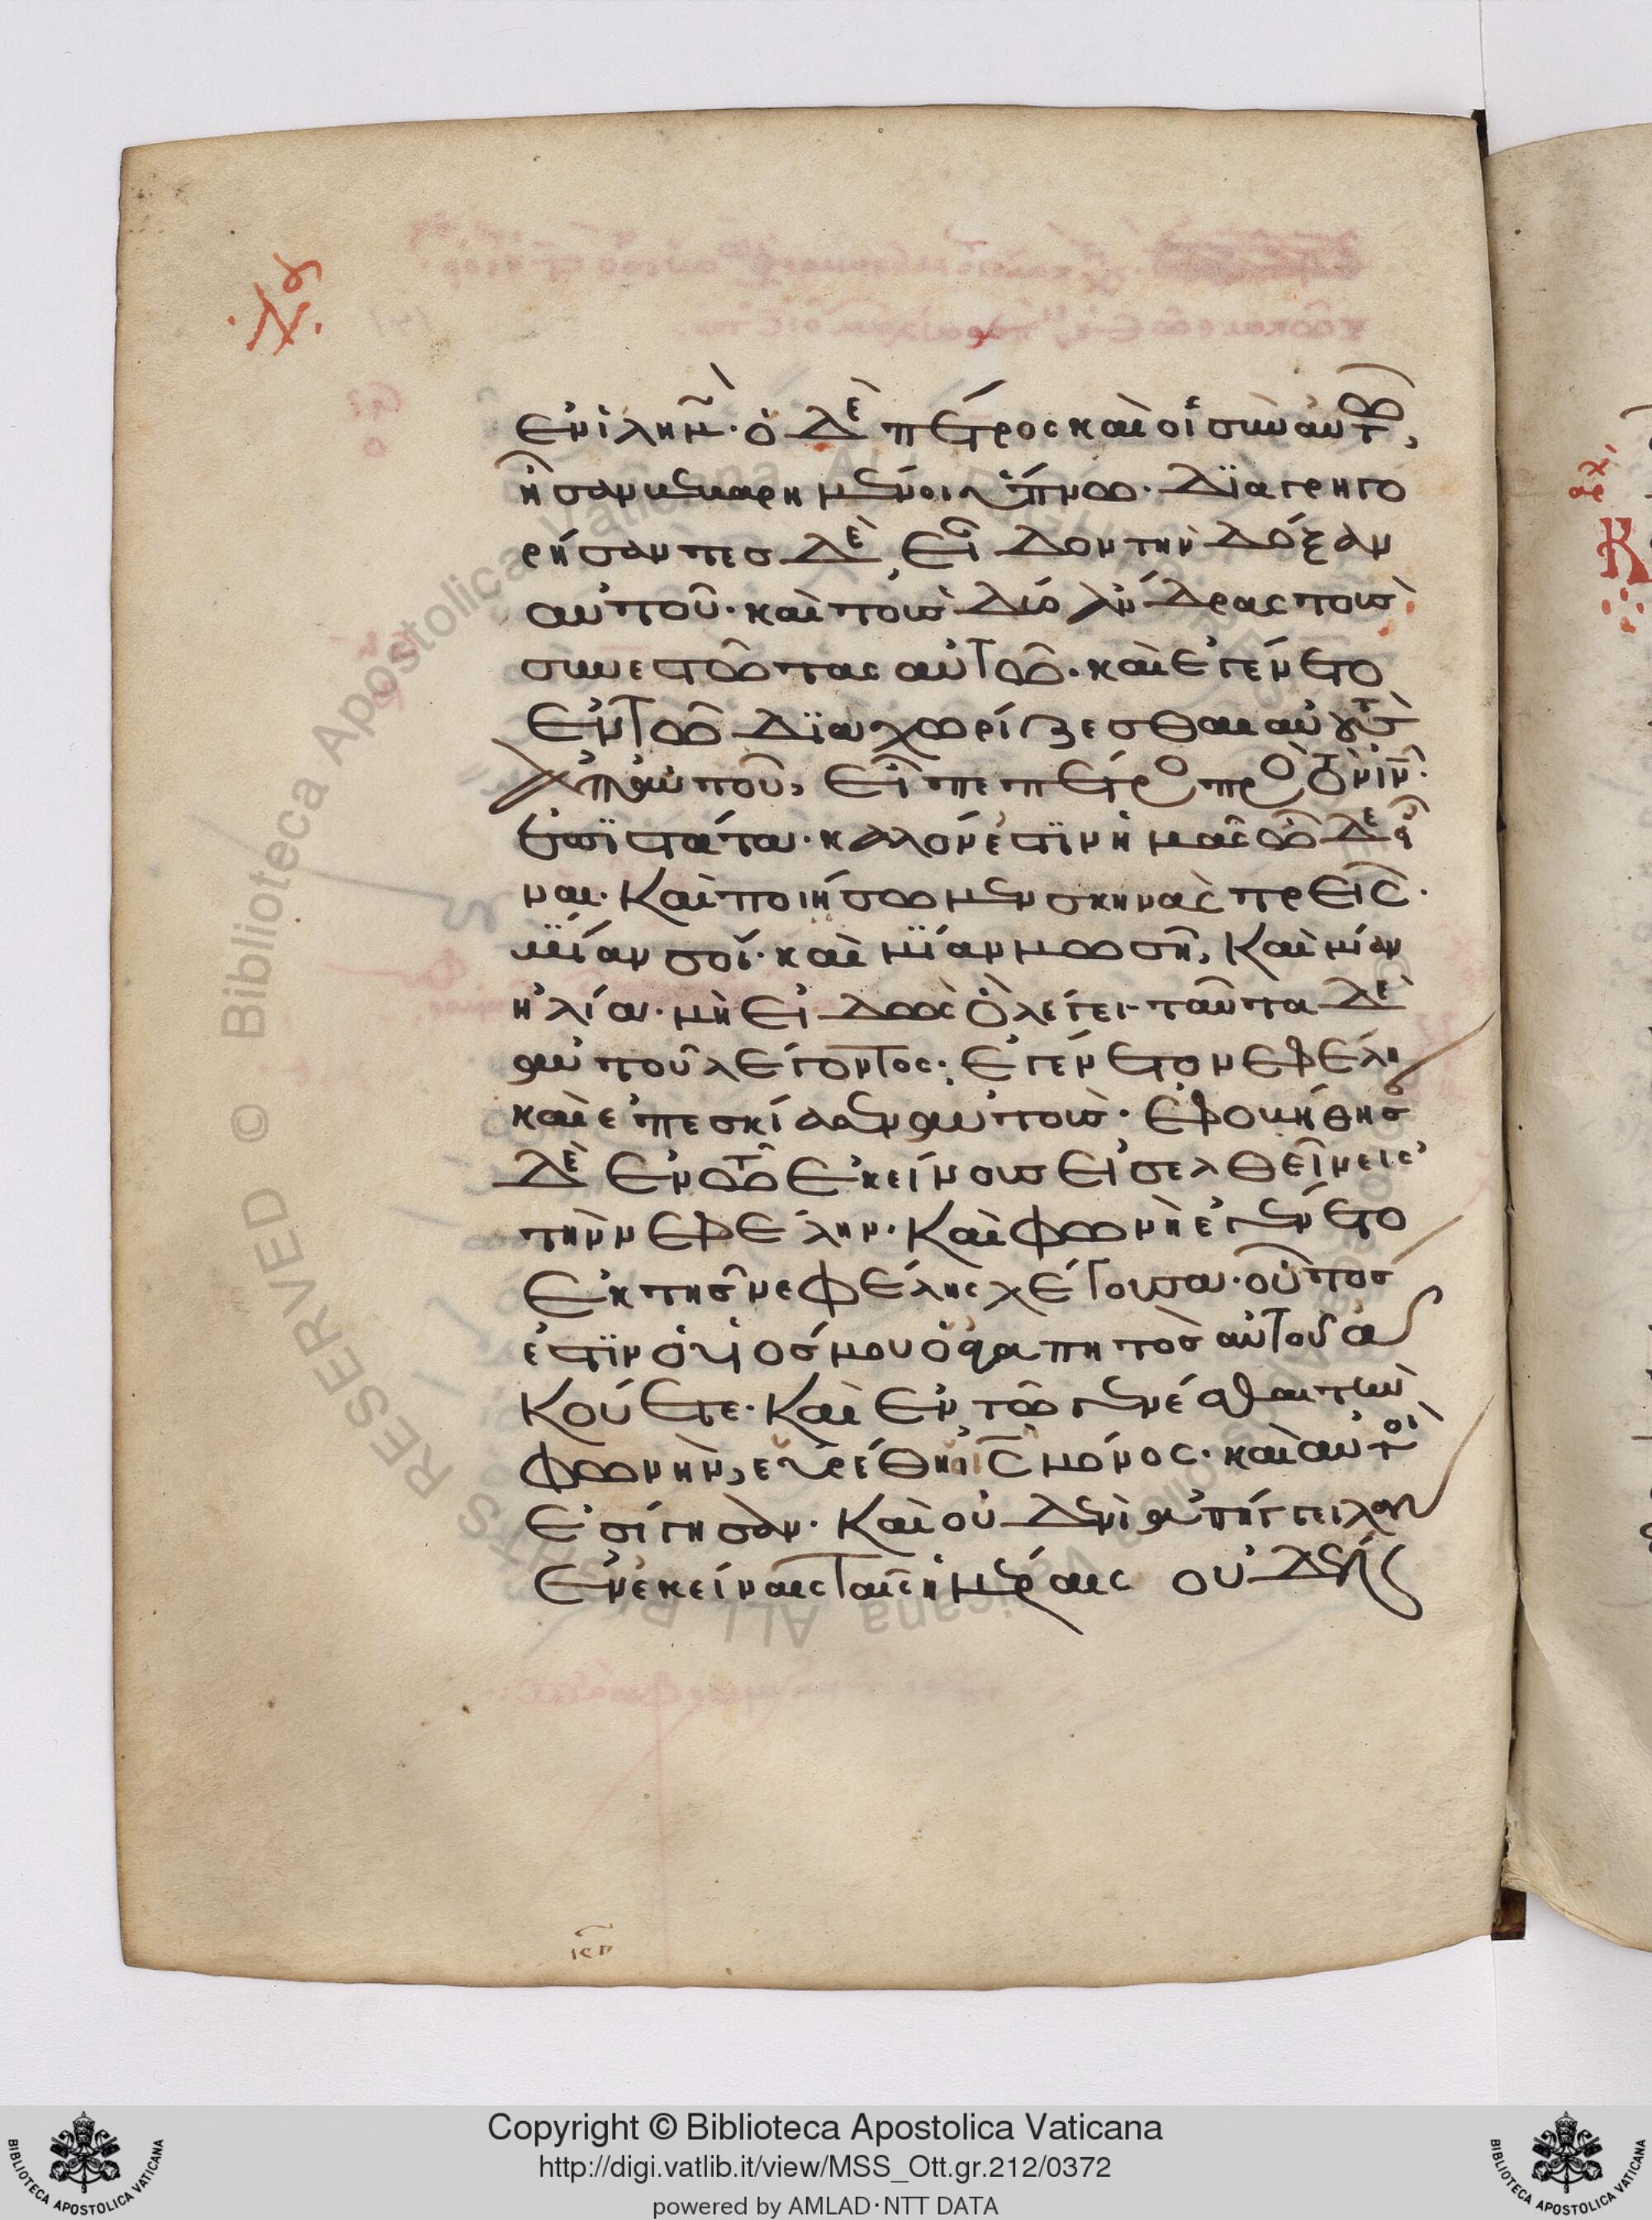 ἐν ἰλημ̃· ὁ δὲ πέτρος καὶ οἱ σὺν αὐτῶ,
ἦσαν βεβαρημένοι ὕπνω· διαγρηγο
ρήσαντες δὲ, εἶδον τὴν δόξαν
αὐτοῦ· καὶ τοὺς δύο ἄνδρας τοὺς
συνεστῶτας αὐτῶ· καὶ ἐγένετο
ἐν τῶ διαχωρίζεσθαι αὐτοὺς
ἀπ' αὐτοῦ, εἶπε πέτρος πρὸς τὸν ιν̃·
ἐπιστάτα· καλόν ἐστιν ἡμᾶς ὧδε εἶ
ναι· Καὶ ποιήσωμεν σκηνὰς τρεῖς·
μίαν σοί· καὶ μίαν μωσῆ, Καὶ μίαν
ἠλία· μὴ εἰδὼς ὃ λέγει· ταῦτα δὲ
αὐτοῦ λέγοντος· ἐγένετο νεφέλη
καὶ ἐπεσκίασεν αὐτούς· ἐφοβήθησ
δὲ ἐν τῶ ἐκείνους εἰσελθεῖν εἰς
τὴν νεφέλην· Καὶ φωνὴ ἐγένετο
ἐκ τῆς νεφέλης λέγουσα· οὗτός
ἐστιν ὁ υἱός μου ὁ ἀγαπητὸς αὐτοῦ ἀ
κούετε· Καὶ ἐν τῶ γενέσθαι τὴν
φωνὴν, εὑρέθη ὁ ις̃ μόνος· καὶ αὐτοὶ
ἐσίγησαν· Καὶ οὐδενὶ ἀπήγγειλαν
ἐν ἐκείναις ταῖς ἡμέραις οὐδὲν
© Biblioteca Apostolica Vaticana ALL RIGHTS RESERVED
Copyright © Biblioteca Apostolica Vaticana
http://digi.vatlib.it/view/MSS_Ott.gr.212/0372
powered by AMLAD·NTT DATA
BIBLIOTECA APOSTOLICA VATICANA
BIBLIOTECA APOSTOLICA VATICANA